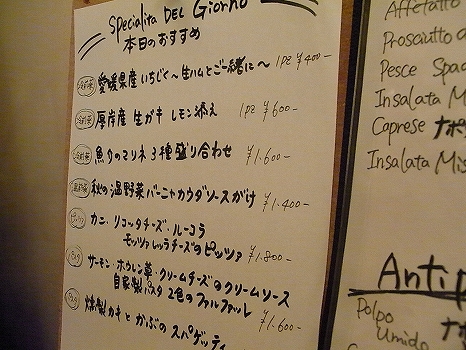 Specialita DEL Giorno
本日のおすすめ
冷前菜 愛媛県産 いちじく〜生ハムとご一緒に〜 1pc ¥400-
冷前菜 厚岸産 生ガキ レモン添え 1pc ¥600-
冷前菜 魚介のマリネ 3種盛り合わせ ¥1.600-
温前菜 秋の温野菜バーニャカウダソースがけ ¥1.400-
ピッツァ カニ・リコッタチーズ・ルーコラ
モッツァレッラチーズのピッツァ ¥1.800-
パスタ サーモン・ホウレン草・クリームチーズのクリームソース
自家製パスタ 2色のファルファッレ
パスタ 燻製カキとかぶのスパゲッティ ¥1.600-
Affettato
Prosciutto
Pesce Spad
Insalata M
Caprese ナポ
Insalata Mis
Antip
Polpo
Umido